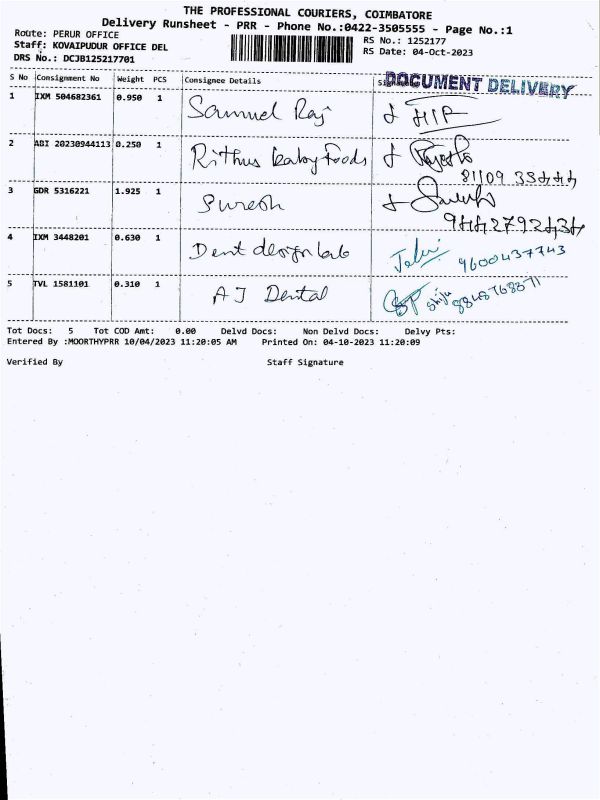 THE PROFESSIONAL COURIERS, COIMBATORE
Delivery Runsheet - PRR - Phone No.:0422-3505555 - Page No.:1
Route: PERUR OFFICE
RS No.: 1252177
Staff: KOVAIPUDUR OFFICE DEL
RS Date: 04-Oct-2023
DRS No.: DCJB125217701
S No Consignment No Weight PCS Consignee Details
DOCUMENT DELIVERY
1 IXM 504682361 0.950 1 Samuel Raj
2 ABI 20230944113 0.250 1 Rithus baby Foods
3 GDR 5316221 1.925 1 Suresh
4 IXM 3448201 0.630 1 Dent design lab 9600437743
5 TVL 1581101 0.310 1 AJ Dental Shiju
Tot Docs: 5 Tot COD Amt: 0.00 Delvd Docs: Non Delvd Docs: Delvy Pts:
Entered By :MOORTHYPRR 10/04/2023 11:20:05 AM Printed On: 04-10-2023 11:20:09
Verified By Staff Signature